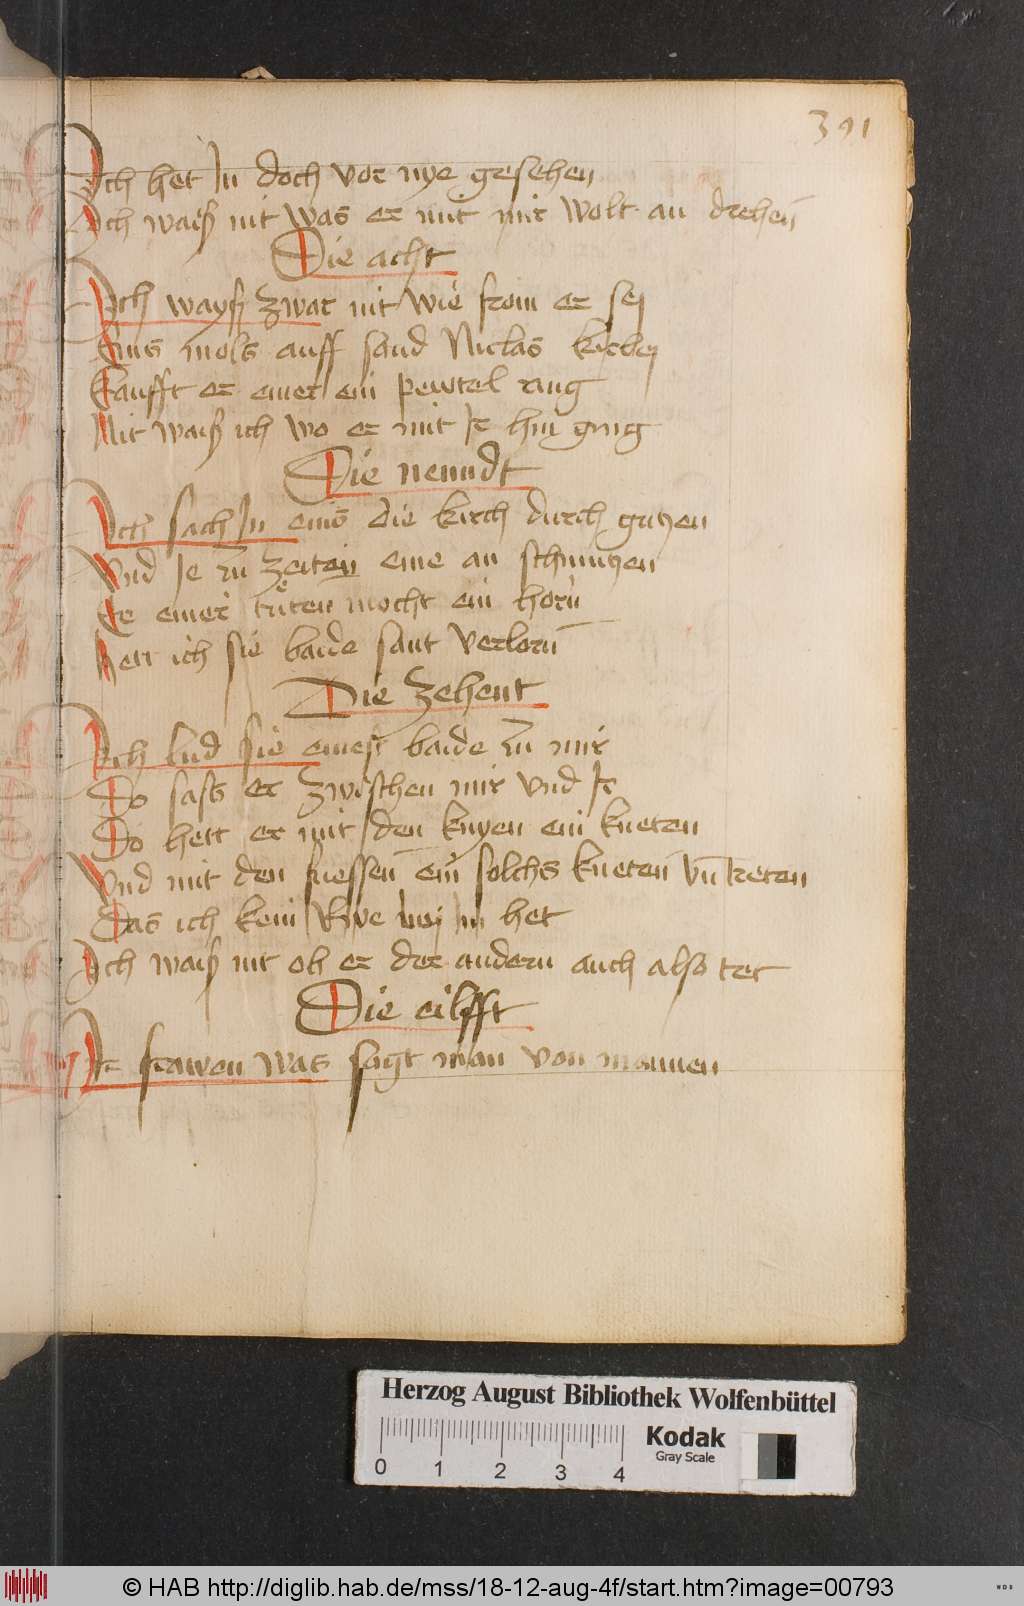 391
Ich het In doch vor nye gesehen
Ich waiß nit was er mit mir wolt an drehen
Die acht
Ich wayß zwar nit wie from er sej
Eins mols auff sand Niclas kirbej
Kaufft er einer ein pewtel ring
Nit waiß ich wo er mit Ir hin ging
Die neundt
Ich sach In eins die kirch durch
Vnd Je zu zeiten eine an schmutzen
Er einer tüten mocht ein horn
Hett ich sie baide sant verlorn
Die zehent
Ich lud sie einest baide zu mir
Do sass er zwischen mir vnd Ir
Do hett er mit den knyen ein kneten
Vnd mit den fuessen ein solchs kneten vn treten
Das ich kein Rwe bej In het
Ich waiß nit ob er der andern auch also tet
Die eilfft
Ir frawen was sagt man von mannen
Herzog August Bibliothek Wolfenbüttel
0 1 2 3 4
Kodak
Gray Scale
© HAB http://diglib.hab.de/mss/18-12-aug-4f/start.htm?image=00793